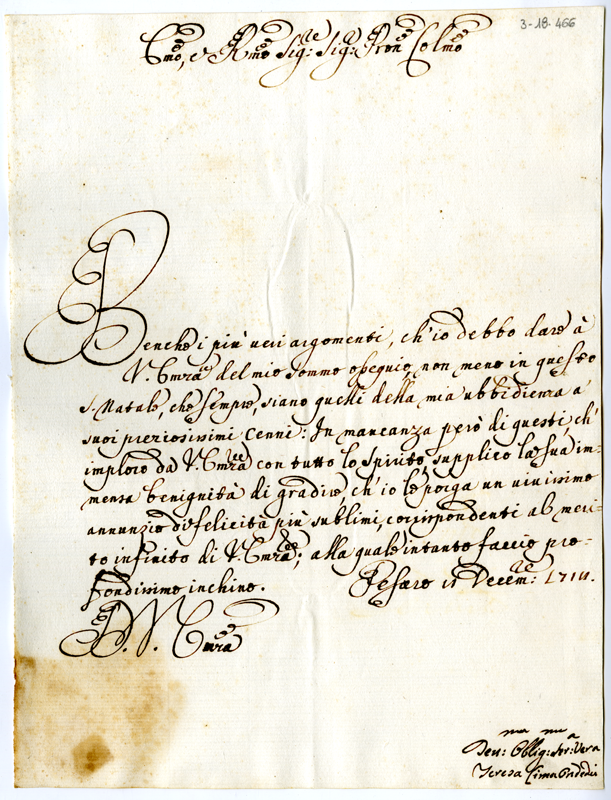 3-18-466
Emo, e Rmo Sig:re Sig:re Pron Colmo
Benche i più veri argomenti, ch'io debbo dare à
V. Emza del mio sommo ossequio, non meno in questo
S. Natale, che sempre, siano quelli della mia ubbidienza a
suoi preziosissimi cenni: In mancanza però di questi ch'
imploro dà V. Emza con tutto lo spirito, supplico la sua im-
mensa benignità di gradire, ch'io le porga un vivissimo
annunzio di felicità più sublimi, corrispondenti al meri-
to infinito di V. Emza; alla quale intanto faccio pro-
fondissimo inchino. Pesaro 11 Decem:re 1711.
D. V. Emza
Dev:ma Oblig:ma Ser:va Vera
Teresa